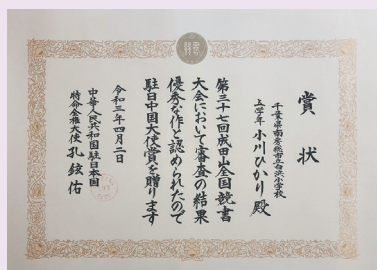 賞状
千葉県南房総市立白浜小学校
五学年 小川ひかり 殿
第三十七回成田山全国競書
大会において審査の結果
優秀な作と認められたので
駐日中国大使賞を贈ります
令和三年四月二日
中華人民共和国駐日本国
特命全権大使 孔鉉佑